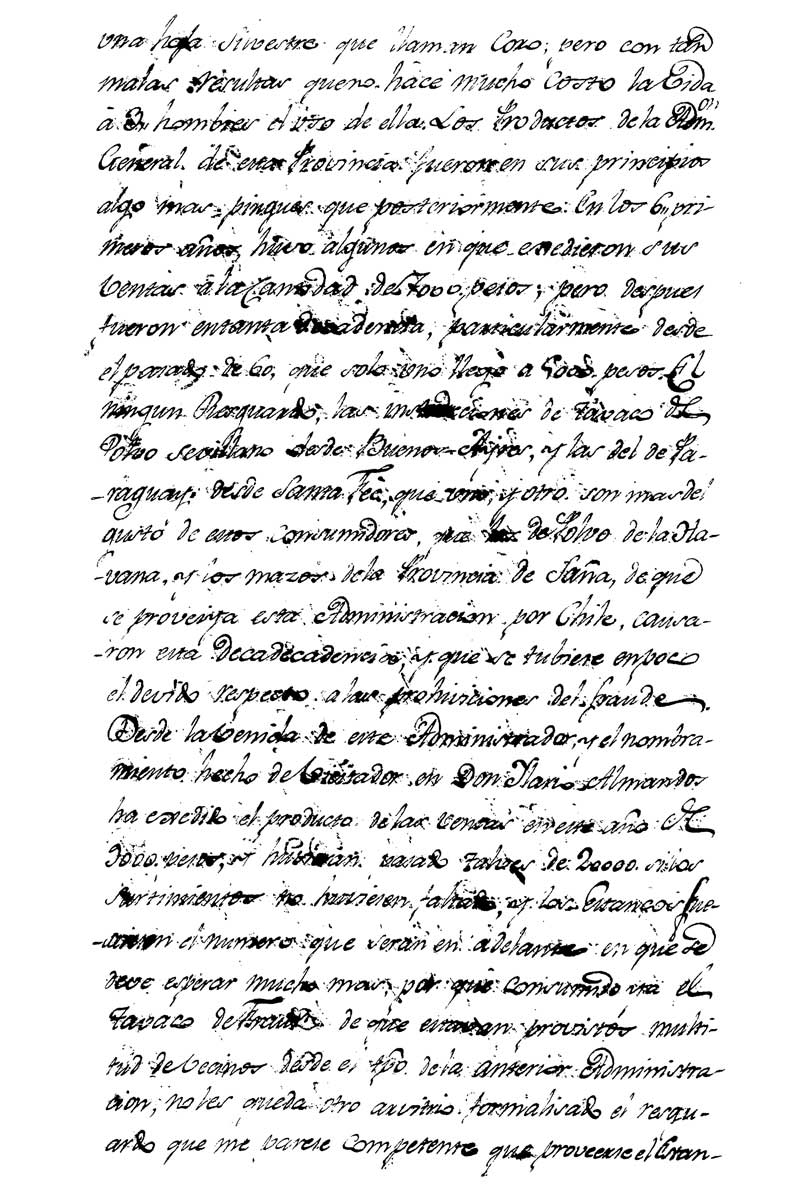 una hoja silvestre que llaman Coro; pero con tan
malas resultas que no hace mucho costo la Vida
à 3,, hombres el uso de ella. Los Productos de la Adm.on
General de esta Provincia fueron en sus principios
algo mas pingues que posteriormente. En los 6,, pri-
meros años, huvo algunos en que exedieron sus
Ventas à la Cantidad de 7000 pesos; pero despues
fueron en tanta decadencia, particularmente desde
el pasado de 60, que solo uno llegó a 5000 pesos. El
ningun Resguardo, las de Tavaco de
Polvo sevillano desde Buenos Ayres, y las del de Pa-
-raguay desde Santa Feè, que uno, y otro son mas del
gusto de estos Consumidores, que de Polvo de la Ha-
-vana, y los mazos de la Provincia de Saña, de que
se proveìa esta Administracion por Chile, causa-
-ron esta Decadecadencia, y que se tubiese en poco
el devido respecto a las prohiviciones del fraude.
Desde la Venida de este Administrador, y el nombra-
miento hecho de Visitador en Don Ylario Almandos
ha exedido el producto de las Ventas en este año de
9000 pesos, y huvieran pasado talves de 20000 si los
surtimientos no huviesen faltado, y los Estancos fue-
el numero que seran en adelante en que se
deve esperar mucho mas, por que Consumido ya el
Tavaco de Fraude de que estavan provistos multi-
tud de Vecinos desde el tpõ de la anterior Administra-
cion, no les queda otro arvitrio formalisado el resgu-
ardo que me parese Competente que proveerse el Estan-